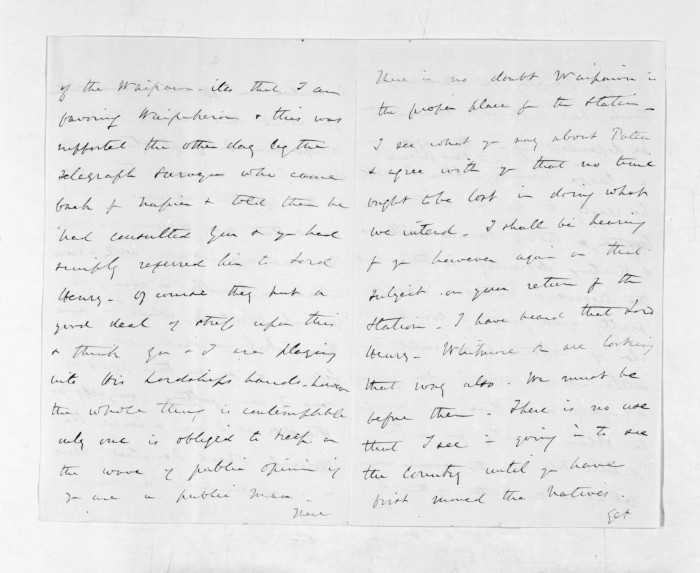 of the Waipawa-ites that I am
favoring Waipukurau & this was
supported the other day by the
Telegraph Surveyor who came
back fr Napier & told them he
had consulted you & you had
simply referred him to Lord
Henry - Of course they put a
good deal of stress upon this
& think you & I are playing
into His Lordships hands - however
the whole thing is contemptible
only one is obliged to keep on
the wave of public opinion if
you are a public man -
There
There is no doubt Waipawa is
the proper place for the Station -
I see what you say about Patea
& agree with you that no time
ought to be lost in doing what
we intend - I shall be hearing
fr you however again on that
subject on your return fr the
Station - I have heard that Lord
Henry - Whitmore are looking
that way also - We must be
before them - There is no use
that I see in going in to see
the Country until you have
first moved the Natives -
Get